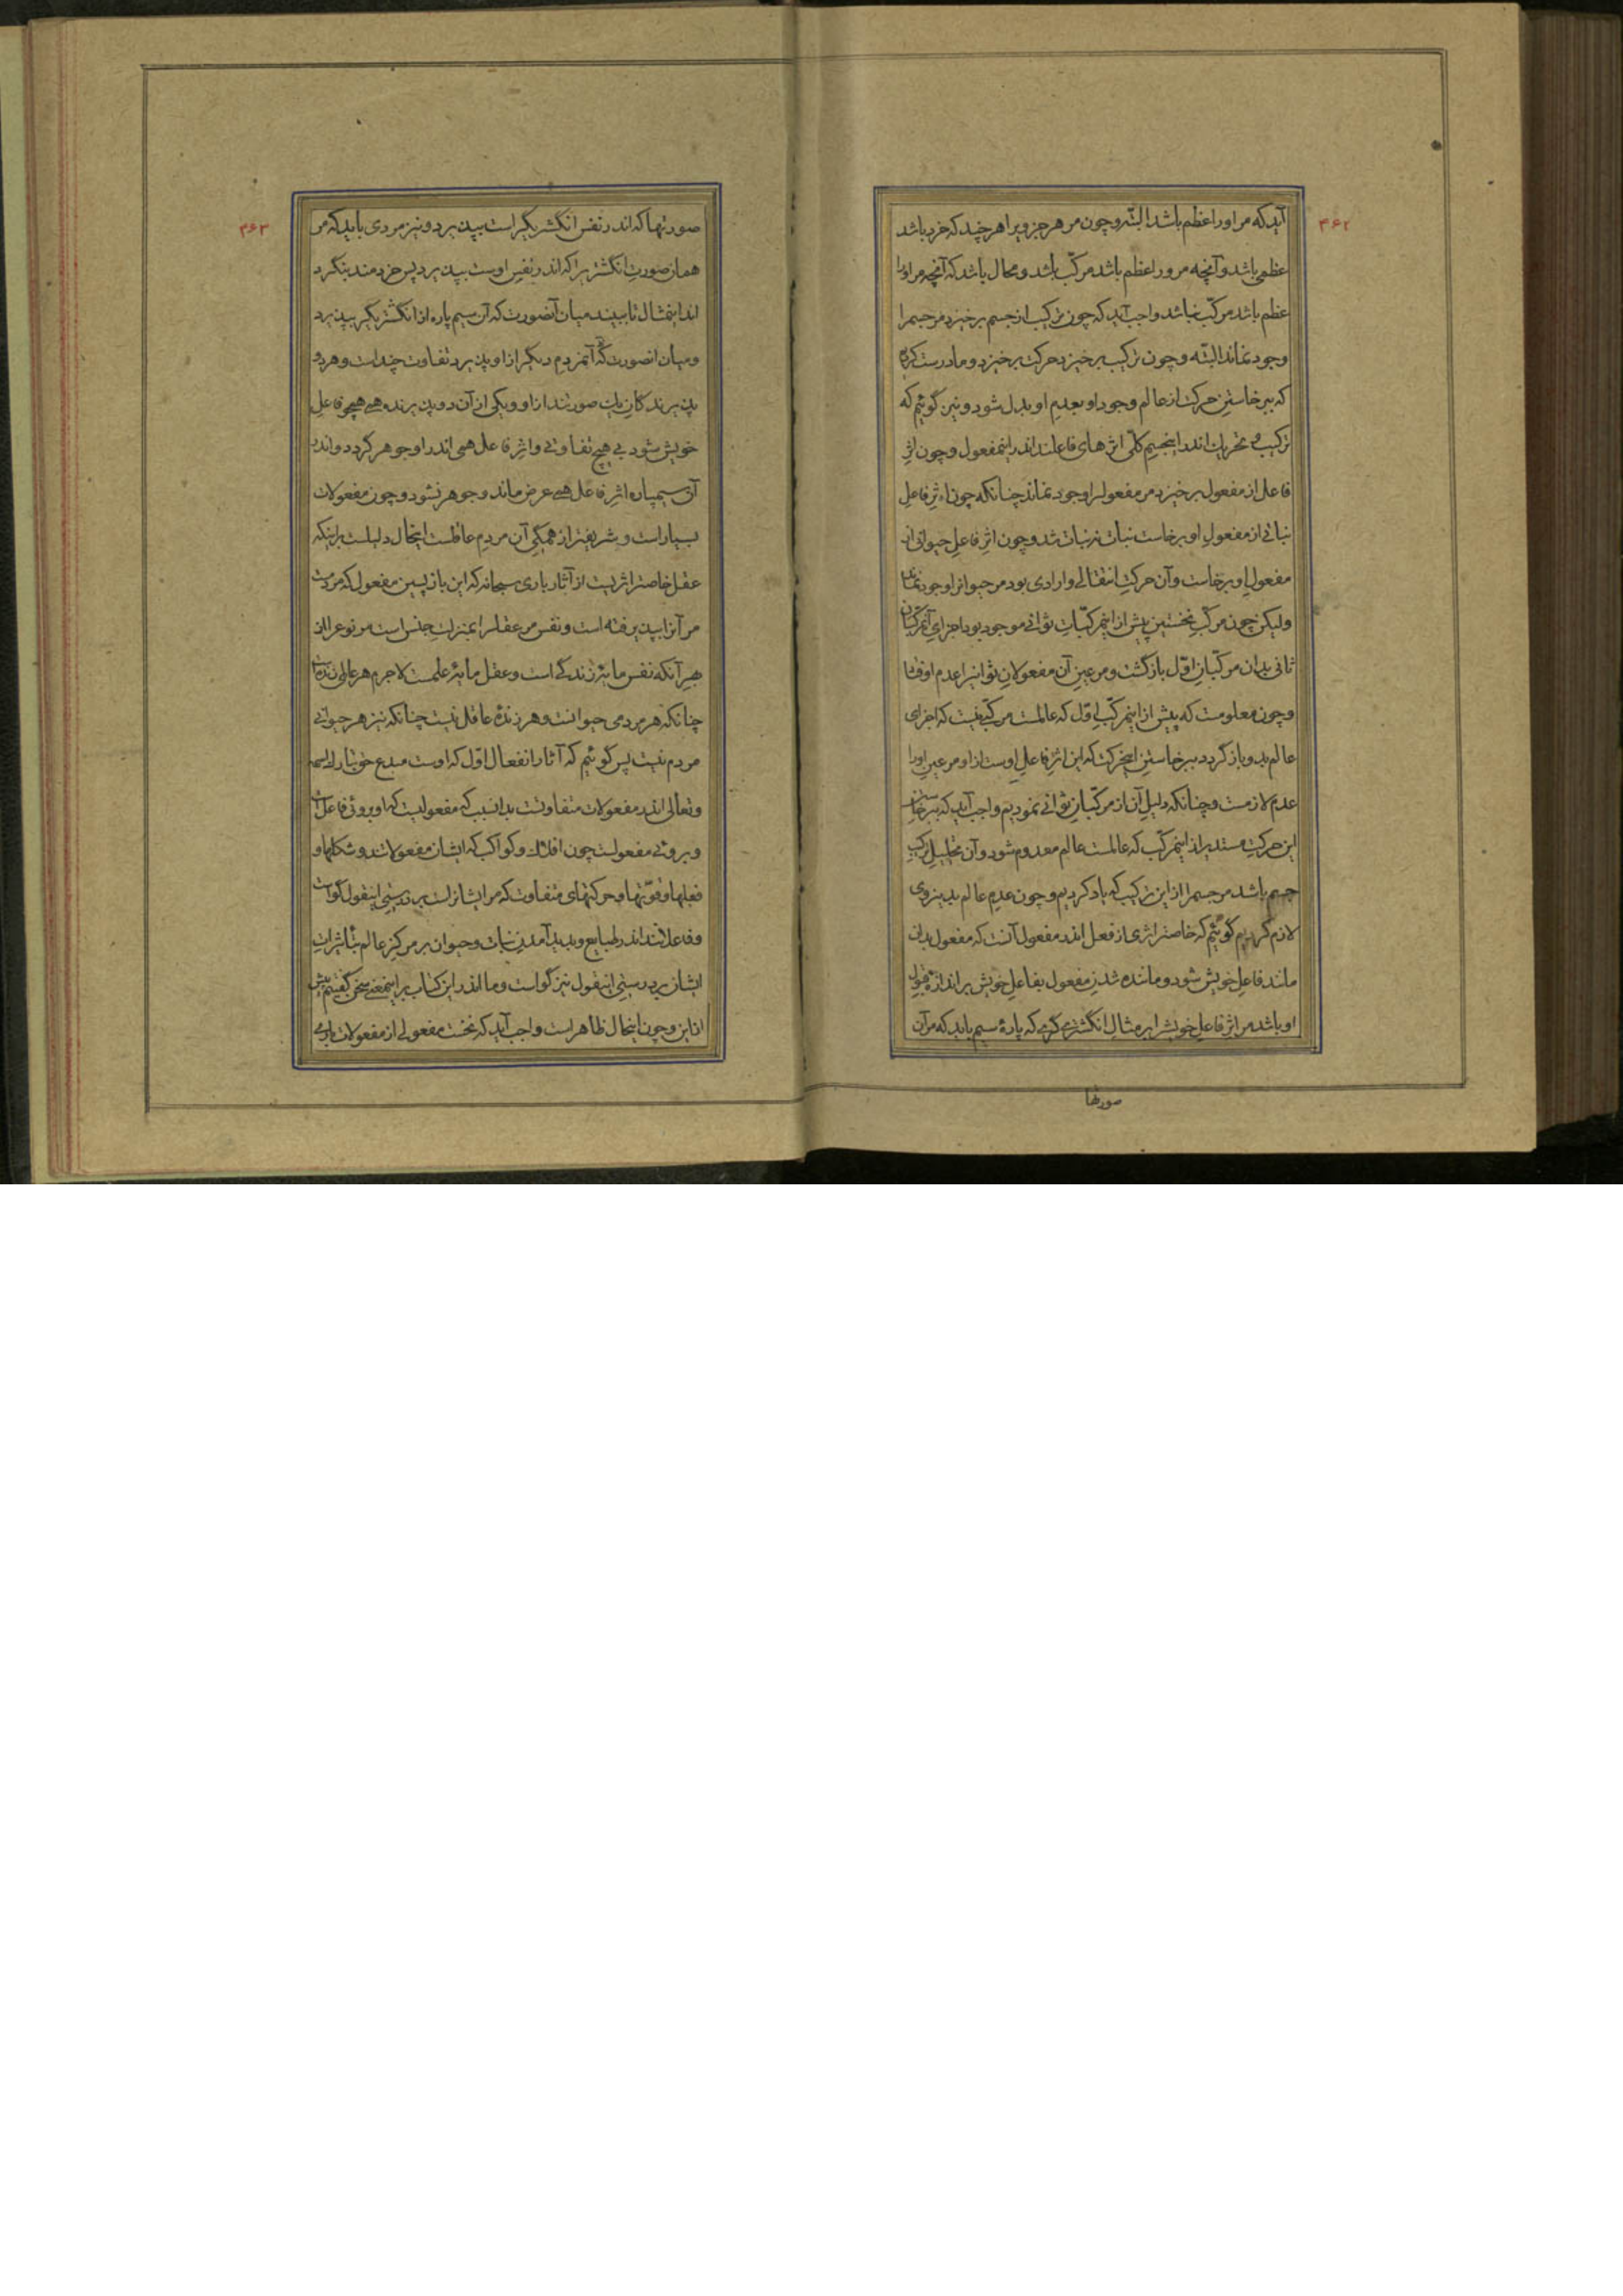 ۴۶۲
آید که مر او را عظم باشد البته و چون مر هر جزوی را هر چند که خرد باشد
عظمی باشد و آنچه مر ور اعظم باشد مرکّب باشد و محال باشد که آنچه مر او را
عظم باشد مرکّب نباشد واجب آید که چون ترکیب از جسم برخیزد مر جسم را
وجود نماند البتّه و چون ترکیب برخیزد حرکت برخیزد و ما درست کردیم
که ببرخاستن حرکت از عالم وجود او بعدم او بدل شود و نیز گوئیم که
ترکیب و تحریک اندر اینجسم کلّی اثرهای فاعلند اندر اینمفعول و چون اثرِ
فاعل از مفعول برخیزد مر مفعول را وجود نماند چنانکه چون اثرِ فاعلِ
نباتی از مفعولِ او برخاست نبات نه نبات شد و چون اثر فاعلِ حیوانی از
مفعولِ او برخاست و آن حرکتِ انتقالی و ارادی بود مر حیوانرا وجود نماند
ولیکن چون مرکّبِ نخستین پیش از اینمرکّباتِ ثوانی موجود بود اجزای آنمرکّبانِ
ثانی بدان مرکّبانِ اوّل بازگشت و مر عینِ آن مفعولانِ ثوانیرا عدم اوفتاد
و چون معلومست که پیش از اینمرکّبِ اوّل که عالمست مرکّبی نیست که اجزای
عالم بدو بازگردد ببرخاستنِ اینحرکت که این اثرِ فاعلِ اوست از او مر عینِ او را
عدم لازمست و چنانکه دلیلِ آن از مرکّبانِ ثوانی نمودیم واجب آید که ببرخاستنِ
این حرکتِ مستدیر از اینمرکّب که عالمست عالم معدوم شود و آن تحلیلِ ترکیبِ
جسم باشد مر جسم را از این ترکیب که یاد کردیم و چون عدمِ عالم بدینروی
لازم کردیم گوئیم که خاصتر اثری از فعل اندر مفعول آنست که مفعول بدان
مانند فاعلِ خویش شود و مانند شدنِ مفعول بفاعلِ خویش بر اندازه قبول
او باشد مر اثرِ فاعلِ خویشرا بر مثالِ انگشتری گری که پارهٔ سیم یابد که مر آن
صورتها
۴۶۳
صورتها که اندر نفس انگشتریگر است بپذیرد و نیز مردی یابد که مر
همان صورتِ انگشتریرا که اندر نفسِ اوست بپذیرد پس خردمند بنگرد
اندر اینمثال تا ببیند میان آنصورت که آن سیم پاره از انگشتریگر بپذیرد
و میان انصورت که آنمردم دیگر از او پذیرد تفاوت چند است و هر دو
پذیرندگانِ یک صورتند از او و یکی از آن دو پذیرنده همی همچو فاعلِ
خویش شود بی هیچ تفاوتی و اثرِ فاعل همی اندر او جوهر گردد و اندر
آن سیمپاره اثرِ فاعل همی عرض ماند و جوهر نشود و چون مفعولات
بسیار است و شریفتر از همگی آن مردمِ عاقلست اینحال دلیلست بر اینکه
عقل خاصتر اثریست از آثار باری سبحانه که این بازپسین مفعول که مردمست
مر آنرا بپذیرفته است و نفس مر عقل را بمنزلت جنس است مر نوع را از
بهرِ آنکه نفس مایهٔ زندگی است و عقل مایهٔ علمست لاجرم هر عالمی زنده است
چنانکه هر مردمی حیوانست و هر زندهٔ عاقل نیست چنانکه نیز هر حیوانی
مردم نیست پس گوئیم که آثار انفعال اوّل که اوست مبدع حق تبارک اسمه
و تعالی اندر مفعولات متفاوتست بدانسبب که مفعولیست که او بروئی فاعل است
و بروئی مفعولست چون افلاک و کواکب که ایشان مفعولاتند و شکلها و
فعلها و قوّتها و حرکتهای متفاوت که مر ایشانراست بر درستی اینقول گواست
و فاعلانند اندر طبایع و پدید آمدنِ نبات و حیوان بر مرکزِ عالم بتأثیراتِ
ایشان بر درستیِ اینقول نیز گواست و ما اندر این کتاب بر اینمعنی سخن گفتیم پیش
از این و چون اینحال ظاهر است واجب آید که نخست مفعولی از مفعولات باری